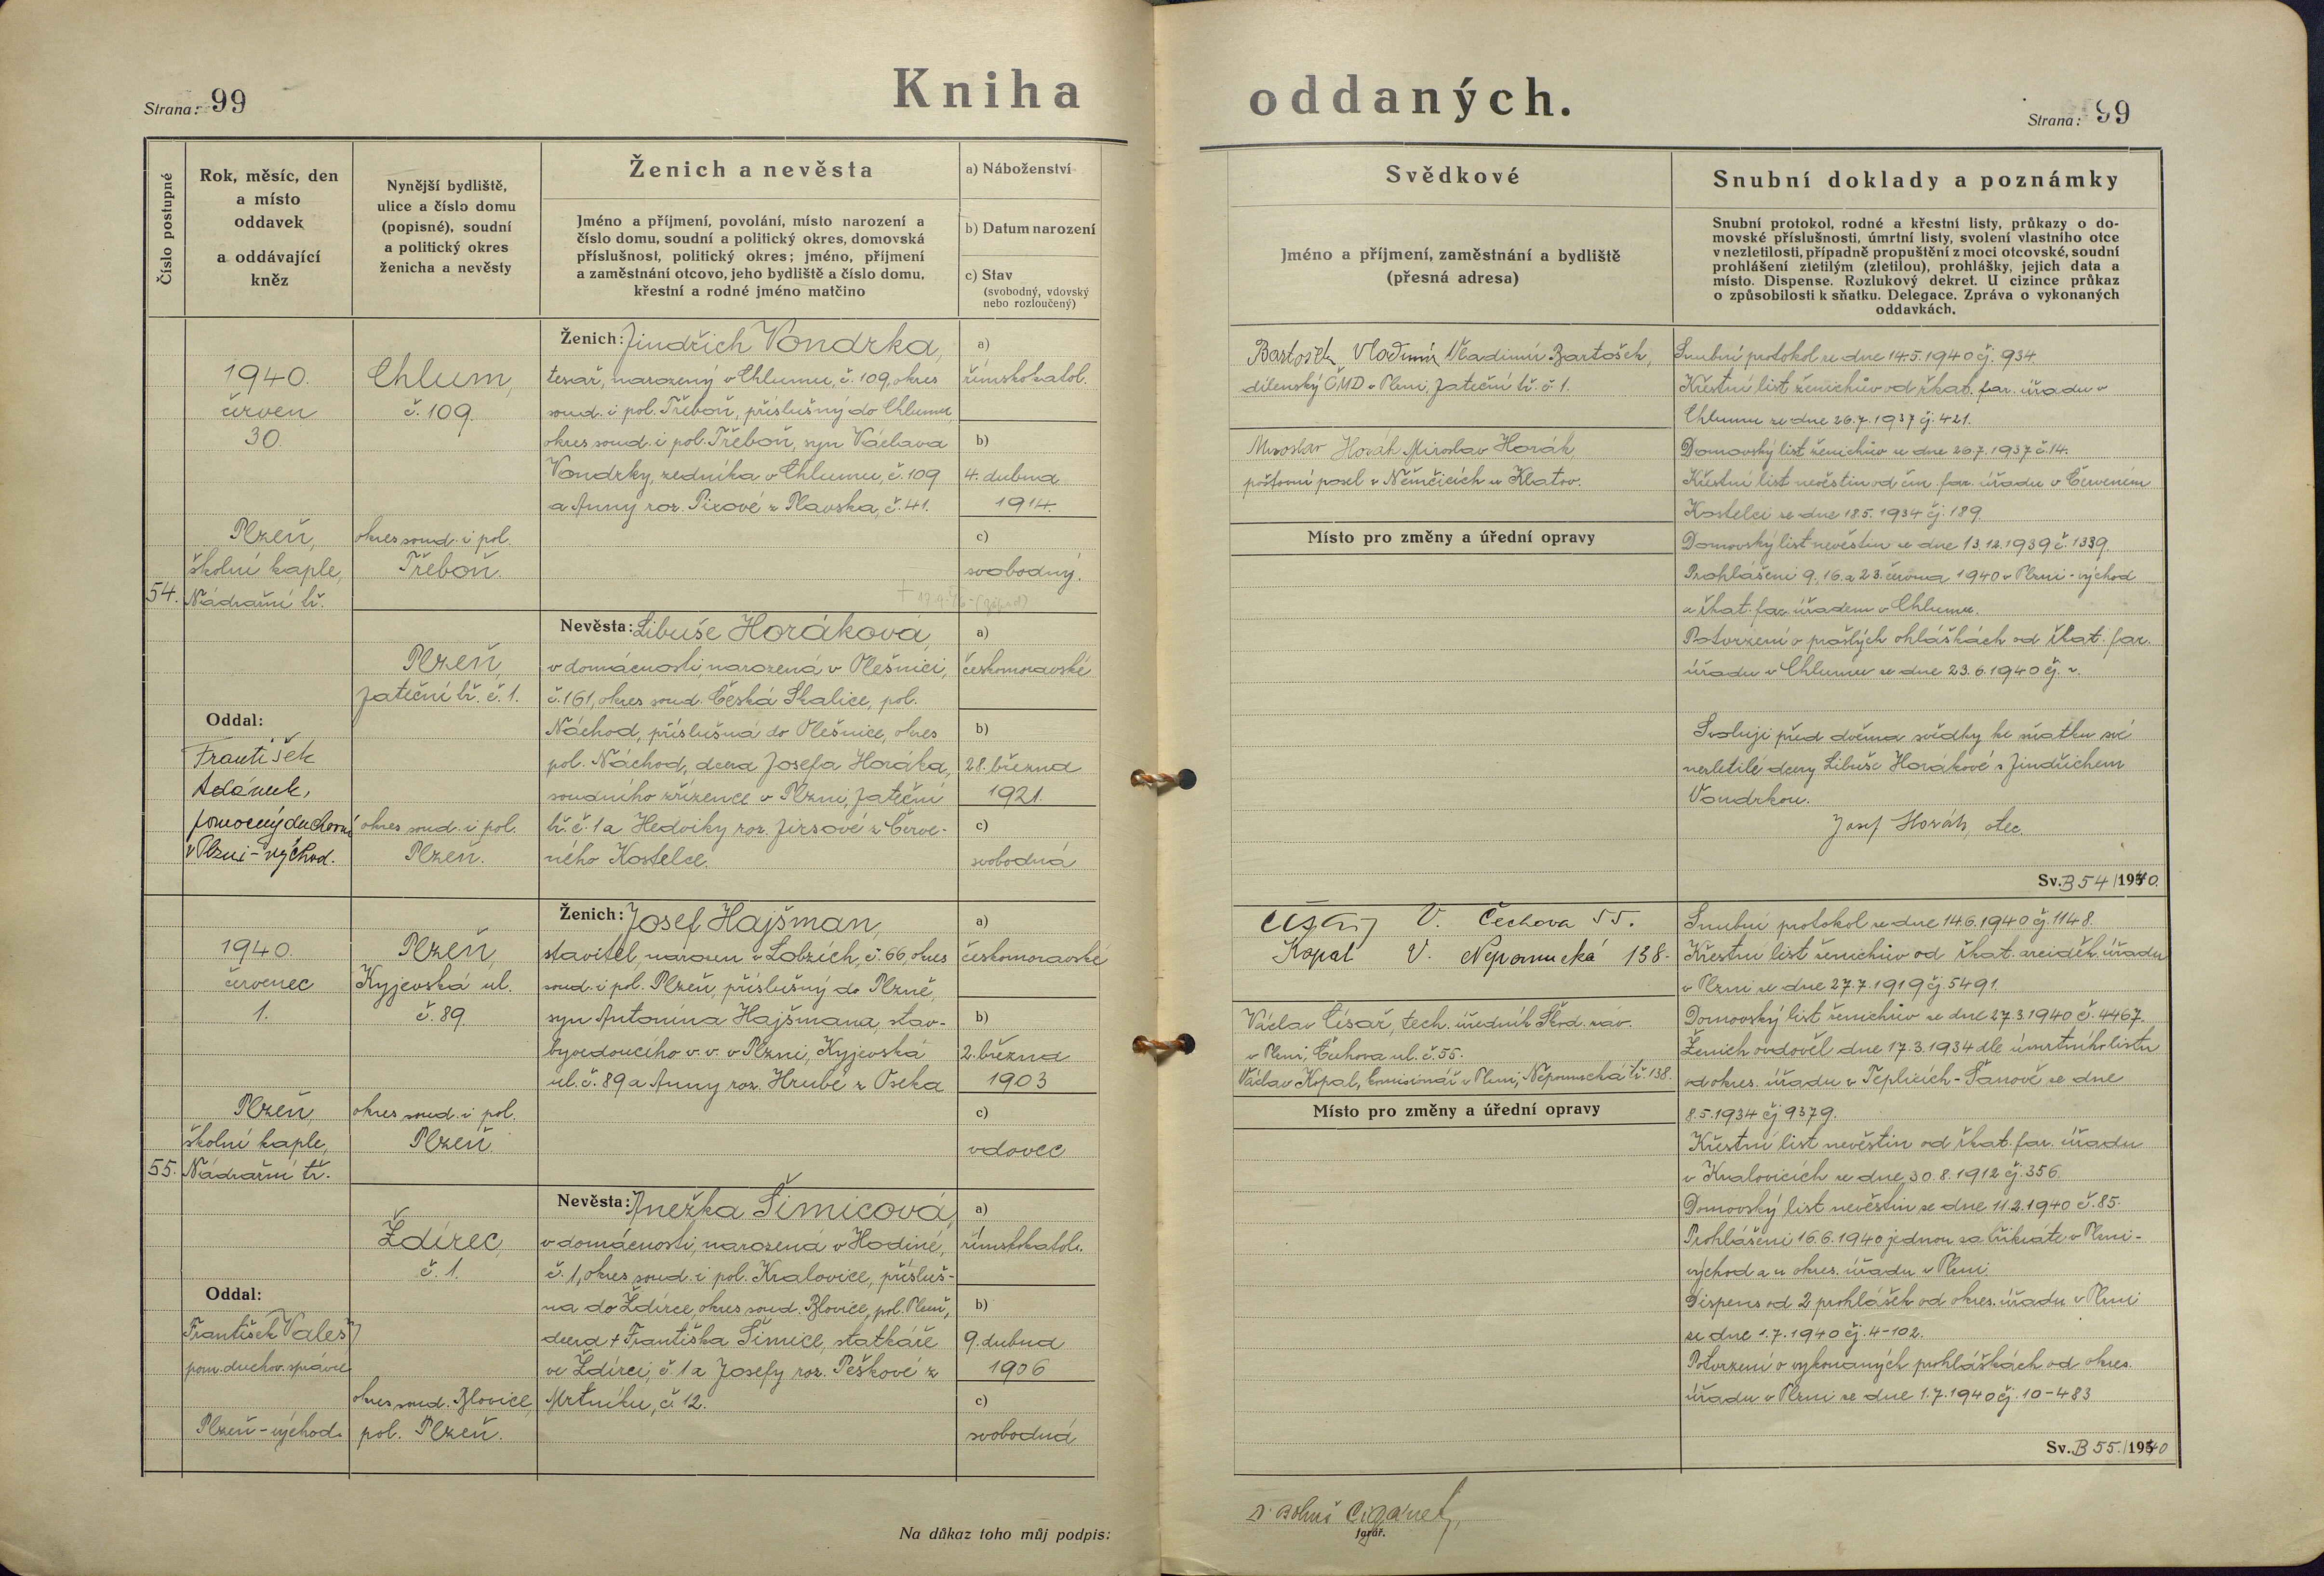 Strana: 99
Kniha
Číslo postupné
Rok, měsíc, den
a místo
oddavek
a oddávající
kněz
Nynější bydliště,
ulice a číslo domu
(popisné), soudní
a politický okres
ženicha a nevěsty
Ženich a nevěsta
Jméno a příjmení, povolání, místo narození a
číslo domu, soudní a politický okres, domovská
příslušnost, politický okres; jméno, příjmení
a zaměstnání otcovo, jeho bydliště a číslo domu,
křestní a rodné jméno matčino
a) Náboženství
b) Datum narození
c) Stav
(svobodný, vdovský
nebo rozloučený)
54.
1940.
červen
30.
Plzeň,
školní kaple,
Nádražní tř.
Oddal:
František
Adámek,
pomocný duchovní
v Plzni-východ.
Chlum,
č. 109.
okres soud. i pol.
Třeboň.
Plzeň,
Jateční tř. č. 1.
okres soud. i pol.
Plzeň.
Ženich: Jindřich Vondrka,
tesař, narozený v Chlumu, č. 109, okres
soud. i pol. Třeboň, příslušný do Chlumu,
okres soud. i pol. Třeboň, syn Václava
Vondrky, zedníka v Chlumu, č. 109
a Anny roz. Pixové z Plavska, č. 41.
Nevěsta: Libuše Horáková,
v domácnosti, narozená v Olešnici,
č. 161, okres soud. Česká Skalice, pol.
Náchod, příslušná do Olešnice, okres
pol. Náchod, dcera Josefa Horáka,
soudního zřízence v Plzni, Jateční
tř. č. 1 a Hedviky roz. Jirsové z Červe-
ného Kostelce.
a)
římskokatol.
b)
4. dubna
1914.
c)
svobodný.
a)
českomoravské
b)
28. března
1921.
c)
svobodná
55.
1940.
červenec
1.
Plzeň,
školní kaple,
Nádražní tř.
Oddal:
František Valeš
pom. duchov. správce
Plzeň-východ.
Plzeň,
Kyjevská ul.
č. 89.
okres soud. i pol.
Plzeň.
Ždírec,
č. 1.
okres soud. Blovice,
pol. Plzeň.
Ženich: Josef Hajšman,
stavitel, narozen v Lobzích, č. 66, okres
soud. i pol. Plzeň, příslušný do Plzně,
syn Antonína Hajšmana, stav-
byvedoucího v. v. v Plzni, Kyjevská
ul. č. 89 a Anny roz. Hrubé z Oseka
Nevěsta: Anežka Šimicová,
v domácnosti, narozená v Hodině,
č. 1, okres soud. i pol. Kralovice, přísluš-
na do Ždírce, okres soud. Blovice, pol. Plzeň,
dcera + Františka Šimice, statkáře
ve Ždírci, č. 1 a Josefy roz. Peškové z
Mrtníku, č. 12.
a)
českomoravské
b)
2. března
1903
c)
vdovec
a)
římskokatol.
b)
9. dubna
1906
c)
svobodná
Na důkaz toho můj podpis:
oddaných.
Strana: 99
Svědkové
Jméno a příjmení, zaměstnání a bydliště
(přesná adresa)
Snubní doklady a poznámky
Snubní protokol, rodné a křestní listy, průkazy o do-
movské příslušnosti, úmrtní listy, svolení vlastního otce
v nezletilosti, případně propuštění z moci otcovské, soudní
prohlášení zletilým (zletilou), prohlášky, jejich data a
místo. Dispense. Rozlukový dekret. U cizince průkaz
o způsobilosti k sňatku. Delegace. Zpráva o vykonaných
oddavkách.
Bartošek Vladimír Vladimír Bartošek,
dílenský ČMD v Plzni, Jateční tř. č. 1.
Miroslav Horák Miroslav Horák,
poštovní posel v Němčicích u Klatov.
Místo pro změny a úřední opravy
Snubní protokol ze dne 14.5.1940 čj. 934
Křestní list ženichův od řkat. far. úřadu v
Chlumu ze dne 26.7.1937 čj. 421.
Domovský list ženichův ze dne 26.7.1937 č. 14.
Křestní list nevěstin od čm. far. úřadu v Červeném
Kostelci ze dne 18.5.1934 čj. 189.
Domovský list nevěstin ze dne 13.12.1939 č. 1339.
Prohlášeni 9., 16. a 23. června 1940 v Plzni-východ
a řkat. far. úřadem v Chlumu.
Potvrzení o prošlých ohláškách od řkat. far.
úřadu v Chlumu ze dne 23.6.1940 čj. -.
Svoluji před dvěma svědky ke sňatku své
nezletilé dcery Libuše Horákové s Jindřichem
Vondrkou.
Josef Horák, otec.
Sv. B 54/1940.
Císař V. Čechova 55.
Kopal V. Nepomucká 138.
Václav Císař, tech. úředník Škod. záv.
v Plzni, Čechova ul. č. 55.
Václav Kopal, komisionář v Plzni, Nepomucká tř. 138.
Místo pro změny a úřední opravy
Snubní protokol ze dne 14.6.1940 čj. 1148.
Křestní list ženichův od řkat. arciděk. úřadu
v Plzni ze dne 27.7.1919 čj. 5491.
Domovský list ženichův ze dne 27.3.1940 č. 4467.
Ženich ovdověl dne 17.3.1934 dle úmrtního listu
od okres. úřadu v Teplicích-Šanově ze dne
8.5.1934 čj. 9379.
Křestní list nevěstin od řkat. far. úřadu
v Kralovicích ze dne 30.8.1912 čj. 356.
Domovský list nevěstin ze dne 11.2.1940 č. 85.
Prohlášeni 16.6.1940 jednou za třikráte v Plzni-
východ a u okres. úřadu v Plzni.
Dispens od 2 prohlášek od okres. úřadu v Plzni
ze dne 1.7.1940 čj. 4-102.
Potvrzení o vykonaných prohláškách od okres.
úřadu v Plzni ze dne 1.7.1940 čj. 10-483
Sv. B 55./1940
Cigánek,
farář.